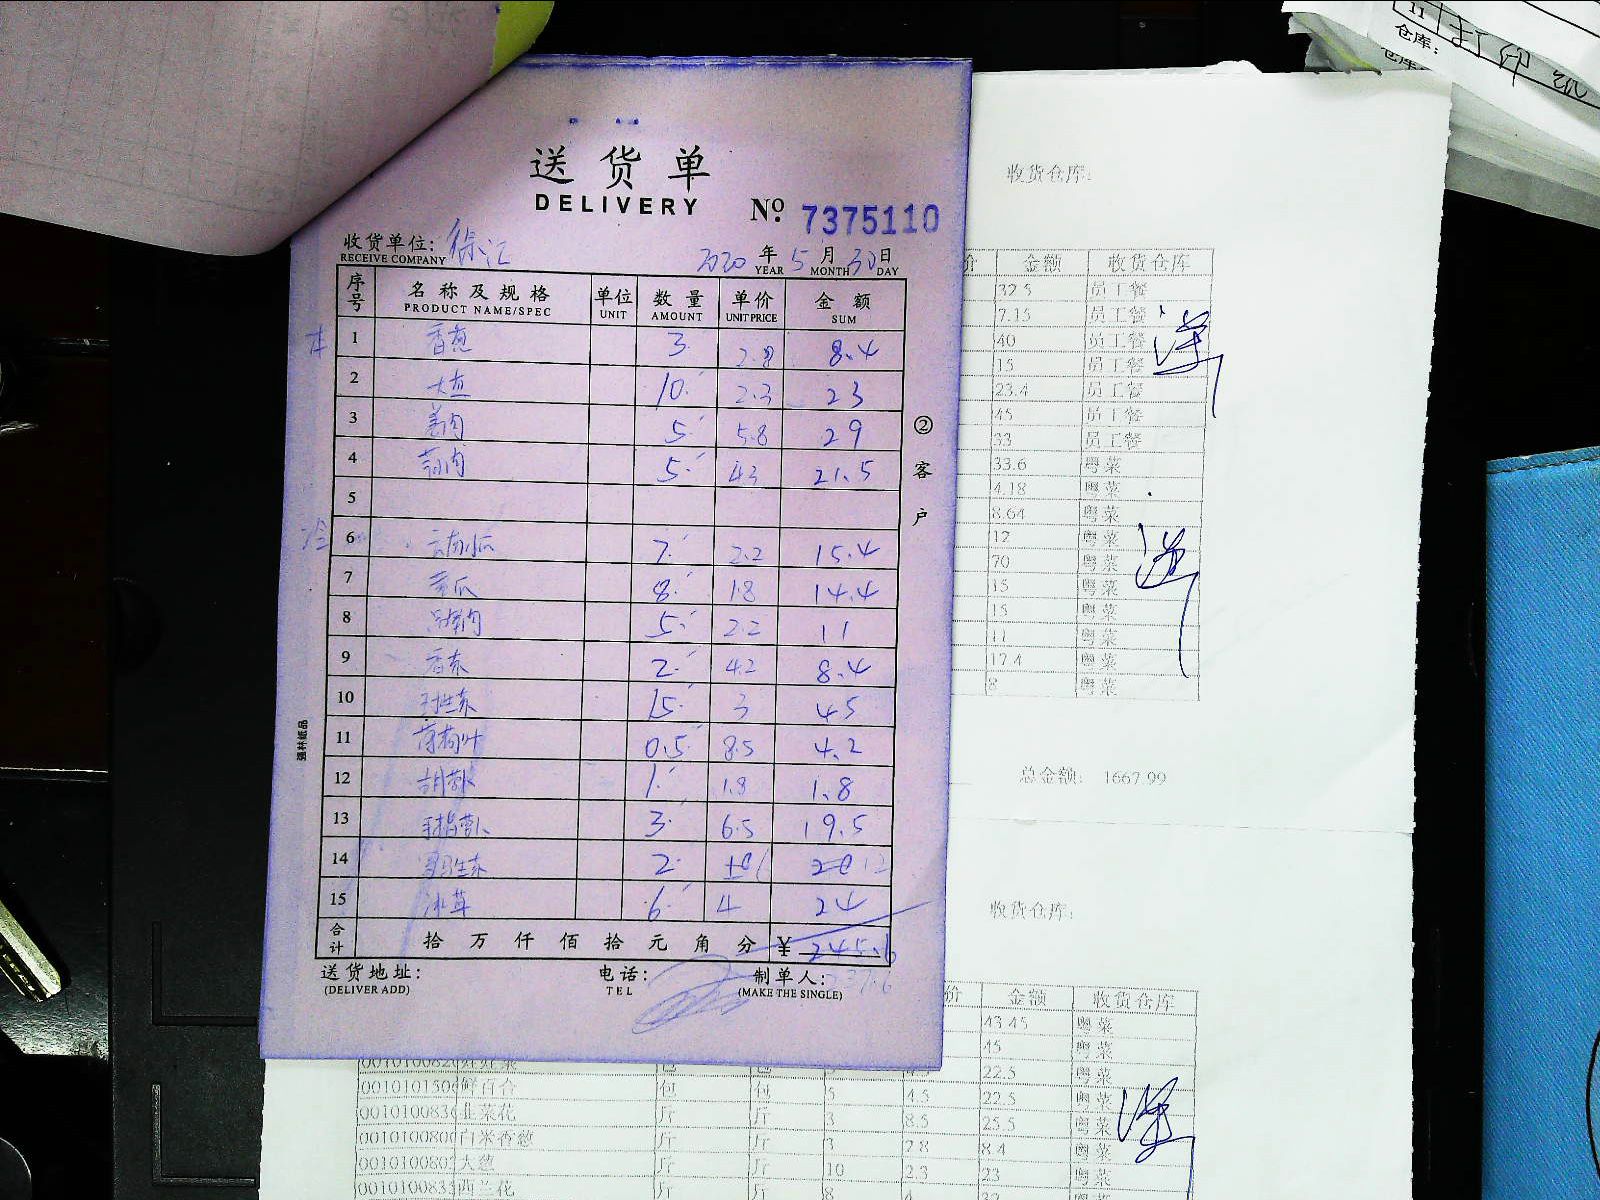 送货单
DELIVERY
№ 7375110
收货单位: 徐汇
RECEIVE COMPANY
2020 年 5 月 30 日
YEAR MONTH DAY
序号 名称及规格 单位 数量 单价 金额
PRODUCT NAME/SPEC UNIT AMOUNT UNIT PRICE SUM
1 香葱 3 2.8 8.4
2 大葱 10 2.3 23
3 姜肉 5 5.8 29
4 蒜肉 5 4.3 21.5
5
6 云南小瓜 7 2.2 15.4
7 黄瓜 8 1.8 14.4
8 5 2.2 11
9 香菜 2 4.2 8.4
10 15 3 45
11 薄荷叶 0.5 8.5 4.2
12 1 1.8 1.8
13 手指萝卜 3 6.5 19.5
14 罗马生菜 2 12
15 冰草 6 4 24
合计 拾 万 仟 佰 拾 元 角 分 ¥ 245.6
送货地址: 电话: 制单人:
(DELIVER ADD) TEL (MAKE THE SINGLE)
② 客户
强林纸品
11
仓库: 打印纸
收货仓库:
价 金额 收货仓库
32.5 员工餐
7.15 员工餐
40 员工餐
15 员工餐
23.4 员工餐
45 员工餐
33 员工餐
33.6 粤菜
4.18 粤菜
8.64 粤菜
12 粤菜
70 粤菜
15 粤菜
15 粤菜
11 粤菜
17.4 粤菜
8 粤菜
总金额: 1667.99
收货仓库:
价 金额 收货仓库
43.45 粤菜
45 粤菜
22.5 粤菜
鲜百合 包 包 5 4.5 22.5 粤菜
韭菜花 斤 斤 3 8.5 25.5 粤菜
白米香葱 斤 斤 3 2.8 8.4 粤菜
大葱 斤 斤 10 2.3 23 粤菜
西兰花 斤 斤 8 4 32 粤菜